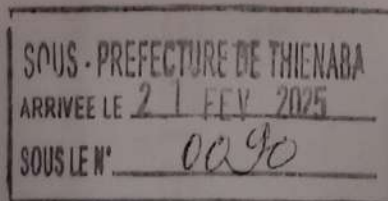 SOUS - PREFECTURE DE THIENABA
ARRIVEE LE 21 FEV 2025
SOUS LE N° 0090